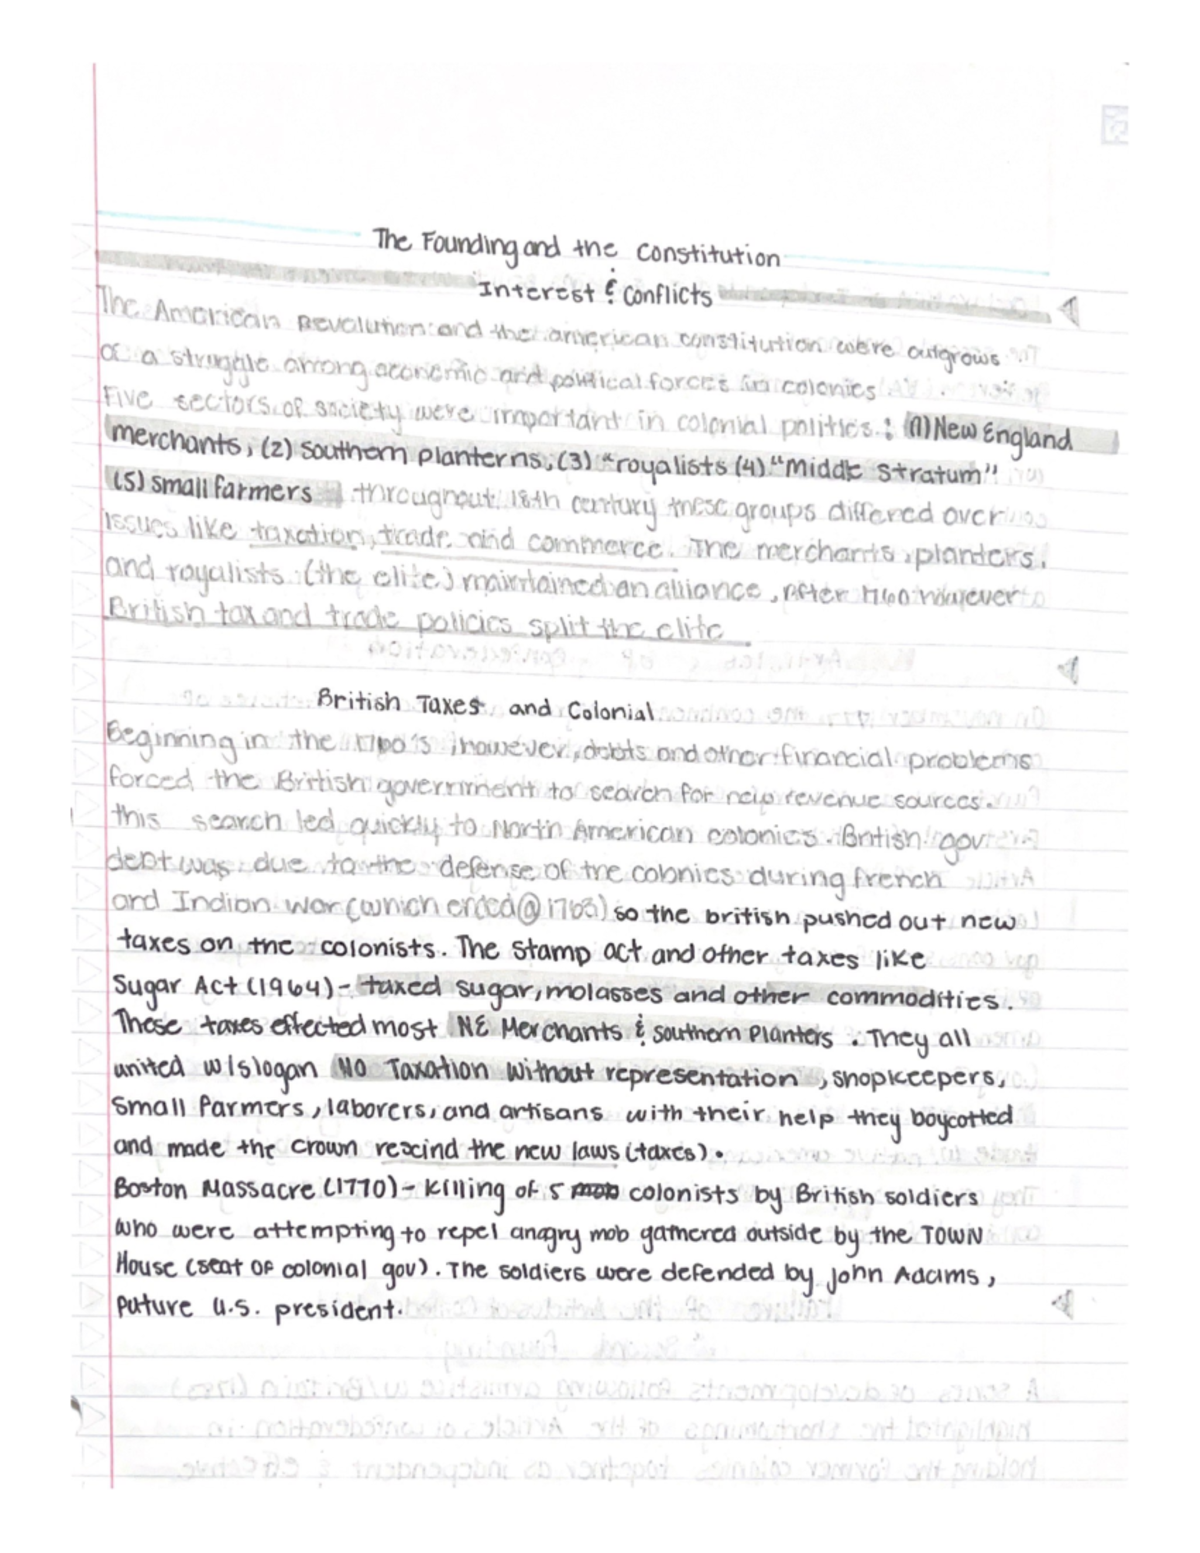 The Founding and the Constitution
Interest & Conflicts
The American Revolution and the american constitution were outgrows
of a struggle among economic and political forces in colonies
Five sectors of society were important in colonial politics : (1) New England
merchants, (2) Southern planterns, (3) "royalists (4) "Middle Stratum"
(5) small farmers throughout 18th century these groups differed over
issues like taxation, trade and commerce. The merchants, planters,
and royalists (the elite) maintained an alliance, After 1760 however
British tax and trade policies split the elite
British Taxes and Colonial
Beginning in the 1760's, however, debts and other financial problems
forced the British government to search for new revenue sources.
this search led quickly to North American colonies. British gov
dept was due to the defense of the colonies during french
and Indian War (which ended @ 1763) so the british pushed out new
taxes on the colonists. The Stamp act and other taxes like
Sugar Act (1964) - taxed sugar, molasses and other commodities.
These taxes effected most NE Merchants & Southern Planters. They all
united w/slogan NO Taxation without representation, shopkeepers,
Small farmers, laborers, and artisans with their help they boycotted
and made the crown rescind the new laws (taxes).
Boston Massacre (1770) - killing of 5 mob colonists by British soldiers
who were attempting to repel anagry mob gathered outside by the TOWN
House (seat of colonial gov). The soldiers were defended by John Adams,
future U.S. president.